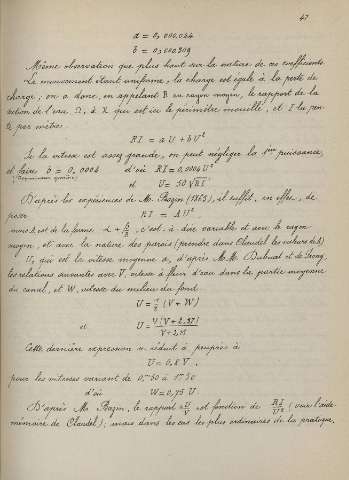 47
a = 0,000,024
b = 0,000309
Même observation que plus haut sur la nature de ces coefficients.
Le mouvement étant uniforme, la charge est égale à la perte de
charge; on a donc, en appelant R un rayon moyen, le rapport de la
section de l'eau, Ω, à X qui est ici le périmètre mouillé, et I la pen-
te par mètre:
RI = aU + bU²
Si la vitesse est assez grande, on peut négliger la 1ère puissance,
et faire b = 0,0004 d'où RI = 0,0004 U²
et U = 50 √RI
D'après les expériences de Mr. Bazin (1865), il suffit, en effet, de
poser RI = AU²
mais A est de la forme α + β/R, c'est à dire variable et avec le rayon
moyen, et avec la nature des parois (prendre dans Claudel les valeurs de A)
U, qui est la vitesse moyenne a, d'après M.M. Dubuat et de Prony,
les relations suivantes avec V, vitesse à fleur d'eau dans la partie moyenne
du canal, et W, vitesse du milieu du fond
U = ½ (V + W)
et U = V(V + 2,37) / V + 3,15
Cette dernière expression se réduit à peu près à
U = 0,8 V,
pour les vitesses variant de 0,m50 à 1m50
d'où W = 0,75 U.
D'après Mr Bazin, le rapport U/V est fonction de RI/U² (voir l'aide-
mémoire de Claudel); mais dans les cas les plus ordinaires de la pratique,